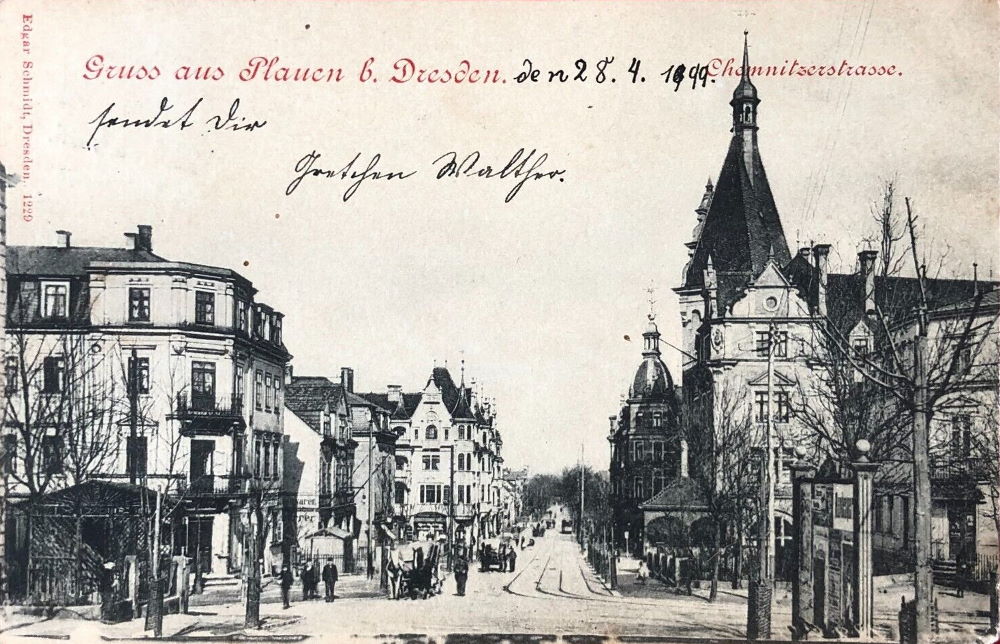 Edgar Schmidt, Dresden. 1229
Gruss aus Plauen b. Dresden. den 28. 4. 1899. Chemnitzerstrasse.
sendet Dir
Gretchen Walther.